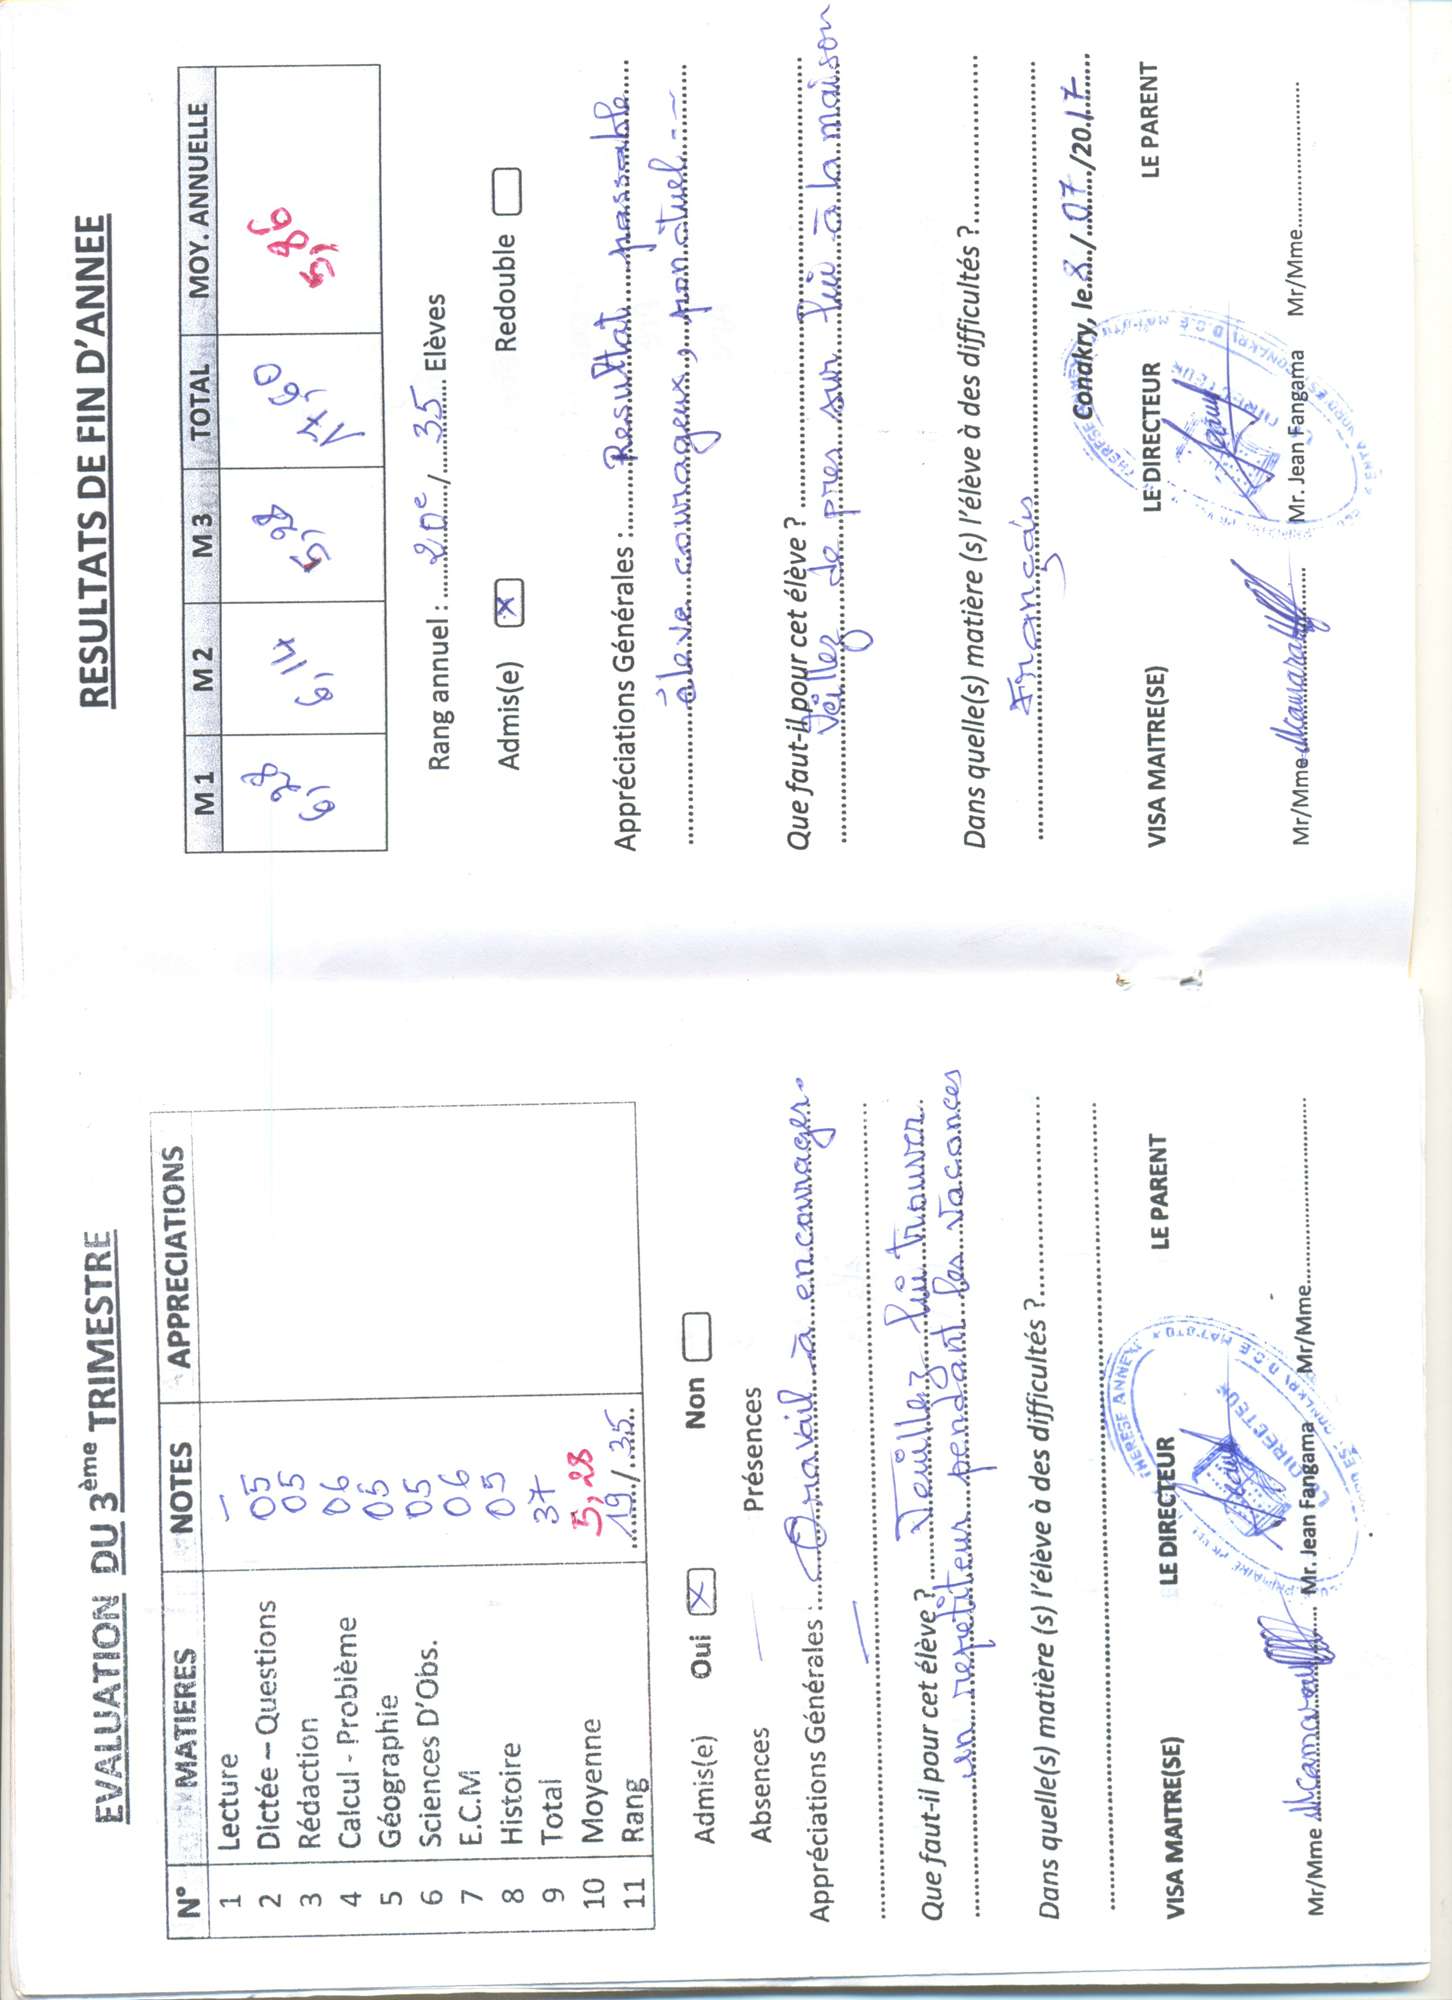 EVALUATION DU 3ème TRIMESTRE
N° MATIERES NOTES APPRECIATIONS
1 Lecture –
2 Dictée – Questions 05
3 Rédaction 05
4 Calcul - Problème 06
5 Géographie 05
6 Sciences D'Obs. 05
7 E.C.M 06
8 Histoire 05
9 Total 37
10 Moyenne 5,28
11 Rang 19/35
Admis(e) Oui x Non
Absences — Présences
Appréciations Générales : Travail à encourager.
Que faut-il pour cet élève ? Veuillez lui trouver
un repetiteur pendant les vacances
Dans quelle(s) matière (s) l'élève à des difficultés ?
VISA MAITRE(SE) LE DIRECTEUR LE PARENT
THERESE ANNEX
DIRECTEUR
Mr/Mme Camara Mr. Jean Fangama Mr/Mme
RESULTATS DE FIN D'ANNEE
M 1 M 2 M 3 TOTAL MOY. ANNUELLE
6,28 6,14 5,28 17,60 5,86
Rang annuel : 20e / 35 Elèves
Admis(e) x Redouble
Appréciations Générales : Resultat passable
élève courageux, ponctuel
Que faut-il pour cet élève ?
Veillez de pres sur lui à la maison
Dans quelle(s) matière (s) l'élève à des difficultés ?
Français
Conakry, le 8 / 07 /2017
VISA MAITRE(SE) LE DIRECTEUR LE PARENT
DIRECTEUR
Mr/Mme Camara Mr. Jean Fangama Mr/Mme